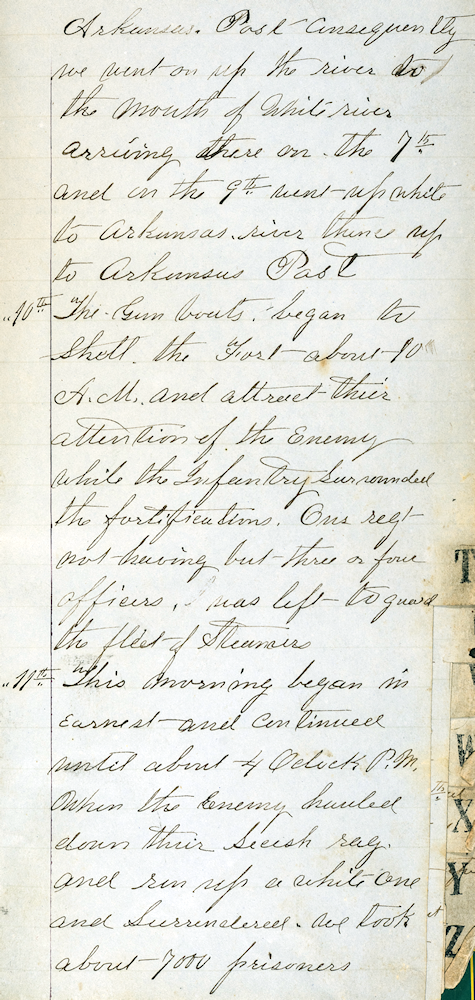 Arkansas. Post Consequently
we went on up the river to
the mouth of White river
arriving there on the 7th
and on the 9th went up white
to Arkansas river thence up
to Arkansas Post
"10th "The Gun boats began to
Shell the Fort about 10
A.M. and attract their
attention of the Enemy
while the Infantry surrounded
the fortifications. Our regt
not having but three or four
officers, was left to guard
the fleet of Steamers
"11th "This morning began in
Earnest and Continued
until about 4 Oclock P.M.
When the Enemy hauled
down their Secesh rag.
and run up a white one
and Surrendered. we took
about 7000 prisoners
T
V
W
X
Y
Z